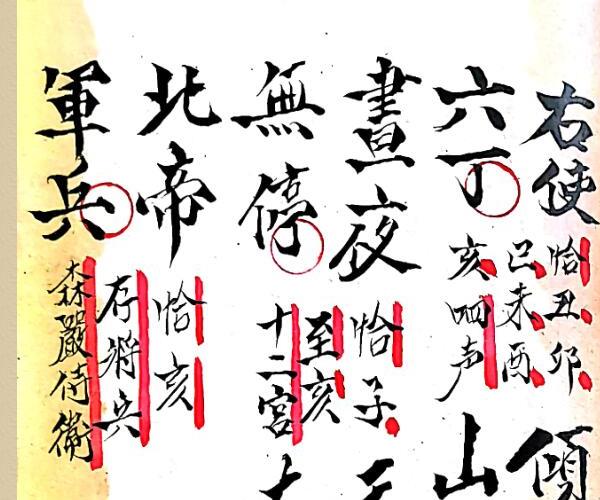 右使
恰丑卯
巳未酉
傾
六丁
亥四声
山
晝夜
恰子
無停
至亥
十二宮
北帝
恰亥
軍兵
存將兵
森嚴侍衛